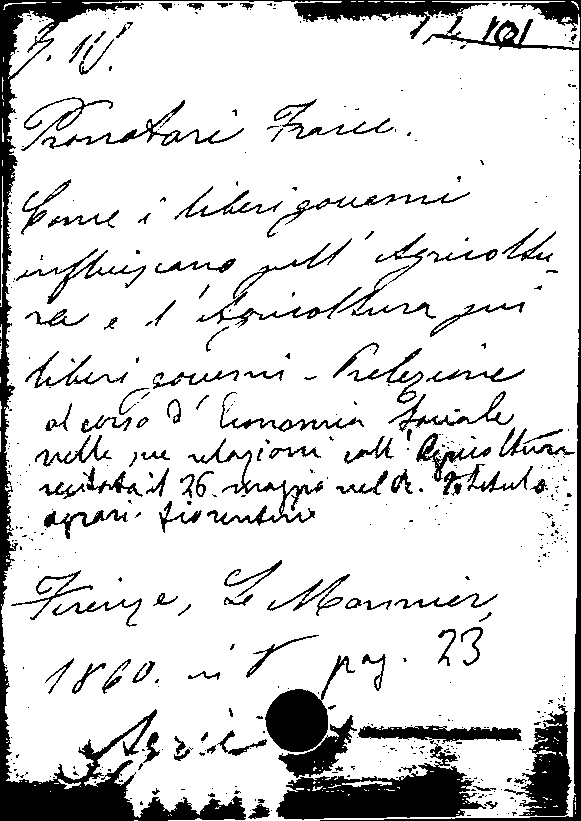 Pronotari Franc.
Come i liberi governi
influiscano sull' Agricoltu-
ra e l' Agricoltura sui
liberi governi - Prelezione
al corso d' Economia Sociale
nelle sue relazioni coll' Agricoltura
recitata il 26 maggio nel R. Istituto
agrari. fiorentino
Firenze, Le Monnier,
1860. in 8 pag. 23